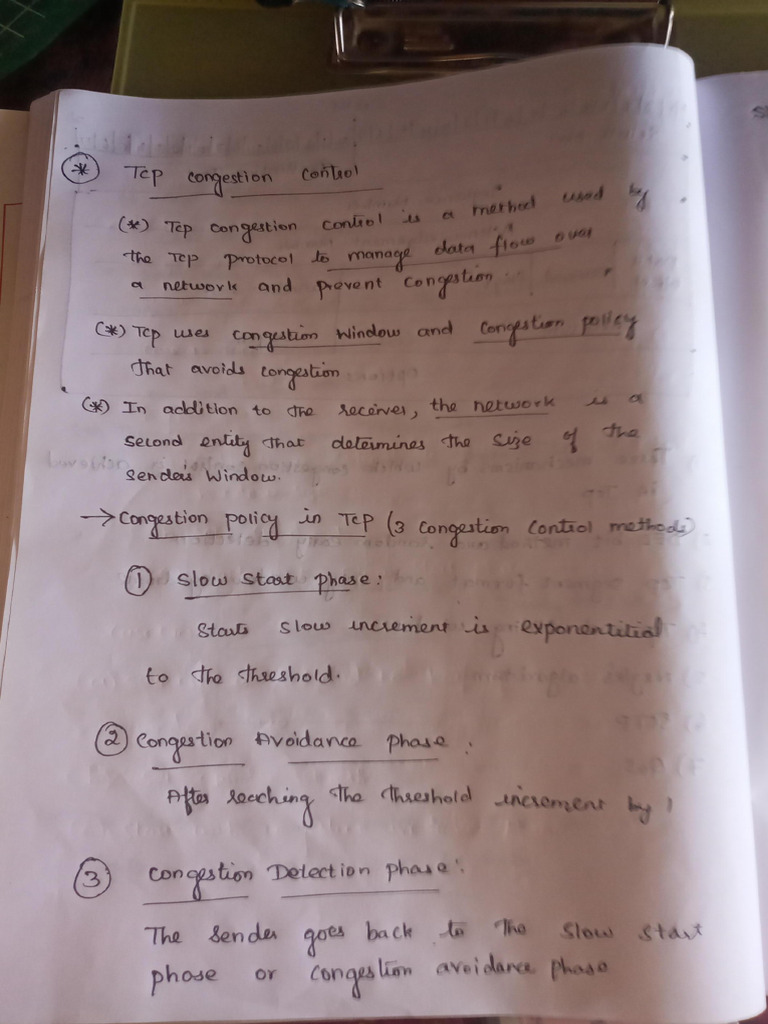 (*) Tcp congestion control
(*) Tcp congestion control is a method used by
the Tcp protocol to manage data flow over
a network and prevent congestion.
(*) Tcp uses congestion window and congestion policy
that avoids congestion
(*) In addition to the receiver, the network is a
second entity that determines the size of the
senders window.
→ Congestion policy in Tcp (3 congestion control methods)
① Slow start phase:
Starts slow increment is exponentitial
to the threshold.
② Congestion Avoidance phase:
After reaching the threshold increment by 1
③ Congestion Detection phase:
The sender goes back to the slow start
phase or congestion avoidance phase